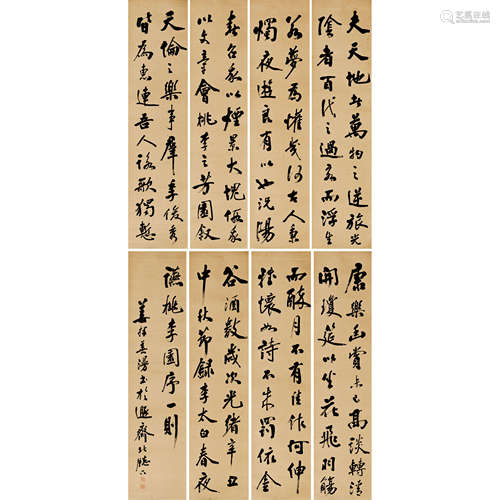 艺狐在线
夫天地者萬物之逆旅光
陰者百代之過客而浮生
若夢為懽幾何古人秉
燭夜遊良有以也況陽
春召我以煙景大塊假我
以文章會桃李之芳園叙
天倫之樂事羣季俊秀
皆為惠連吾人詠歌獨慙
康樂幽賞未已高談轉清
開瓊筵以坐花飛羽觴
而醉月不有佳作何伸
雅懷如詩不成罰依金
谷酒數歲次光緒辛丑
中秋節錄李太白春夜
讌桃李園序一則
姜 漫書於 齋北牕下